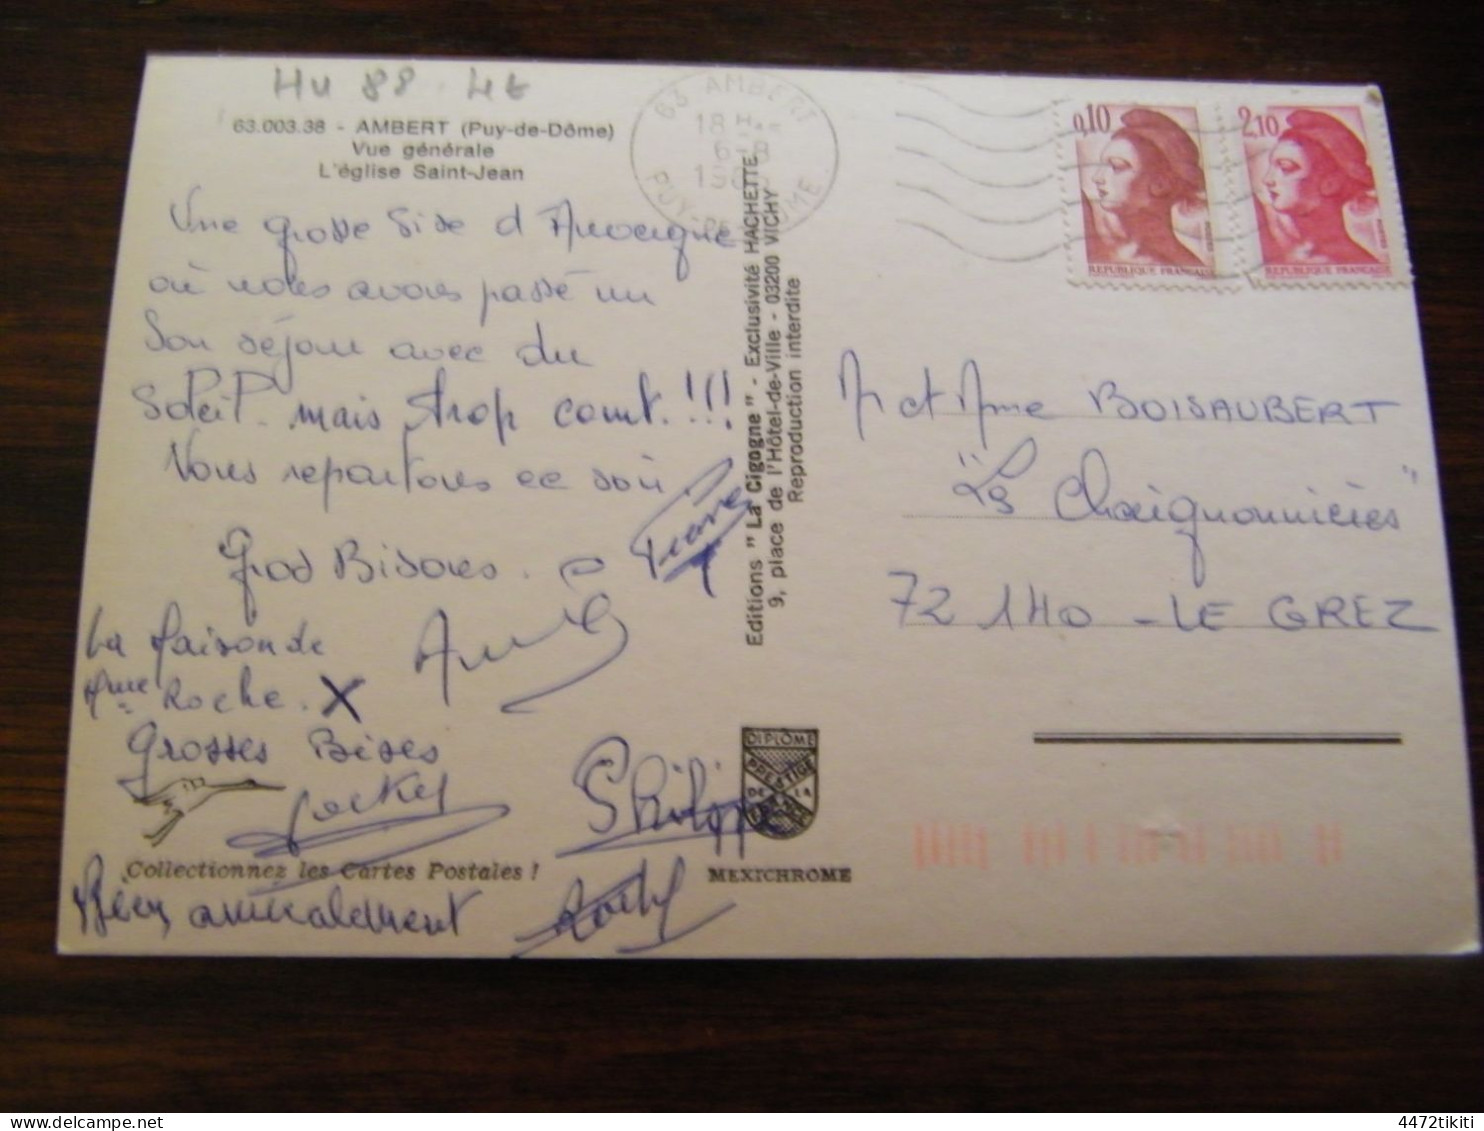 63.003.38 - AMBERT (Puy-de-Dôme)
Vue générale
L'église Saint-Jean
Une grosse bise d'Auvergne
où nous avons passé un
bon séjour avec du
soleil. mais trop court.!!!
Nous repartons ce soir
Gros Bisous.
Pierre
La Maison de
Mme Roche. X
Grosses Bises
Philippe
Collectionnez les Cartes Postales !
Bien amicalement
63 AMBERT
18 H
6-8
PUY-DE-DOME
Editions "La Cigogne" - Exclusivité HACHETTE
9, place de l'Hôtel-de-Ville - 03200 VICHY
Reproduction interdite
DIPLOME
PRESTIGE
DE LA
FRANCE
MEXICHROME
0,10
REPUBLIQUE FRANÇAISE
2,10
REPUBLIQUE FRANÇAISE
M et Mme BOISAUBERT
"Les Chaignonnières"
72140 - LE GREZ
4472tikiti